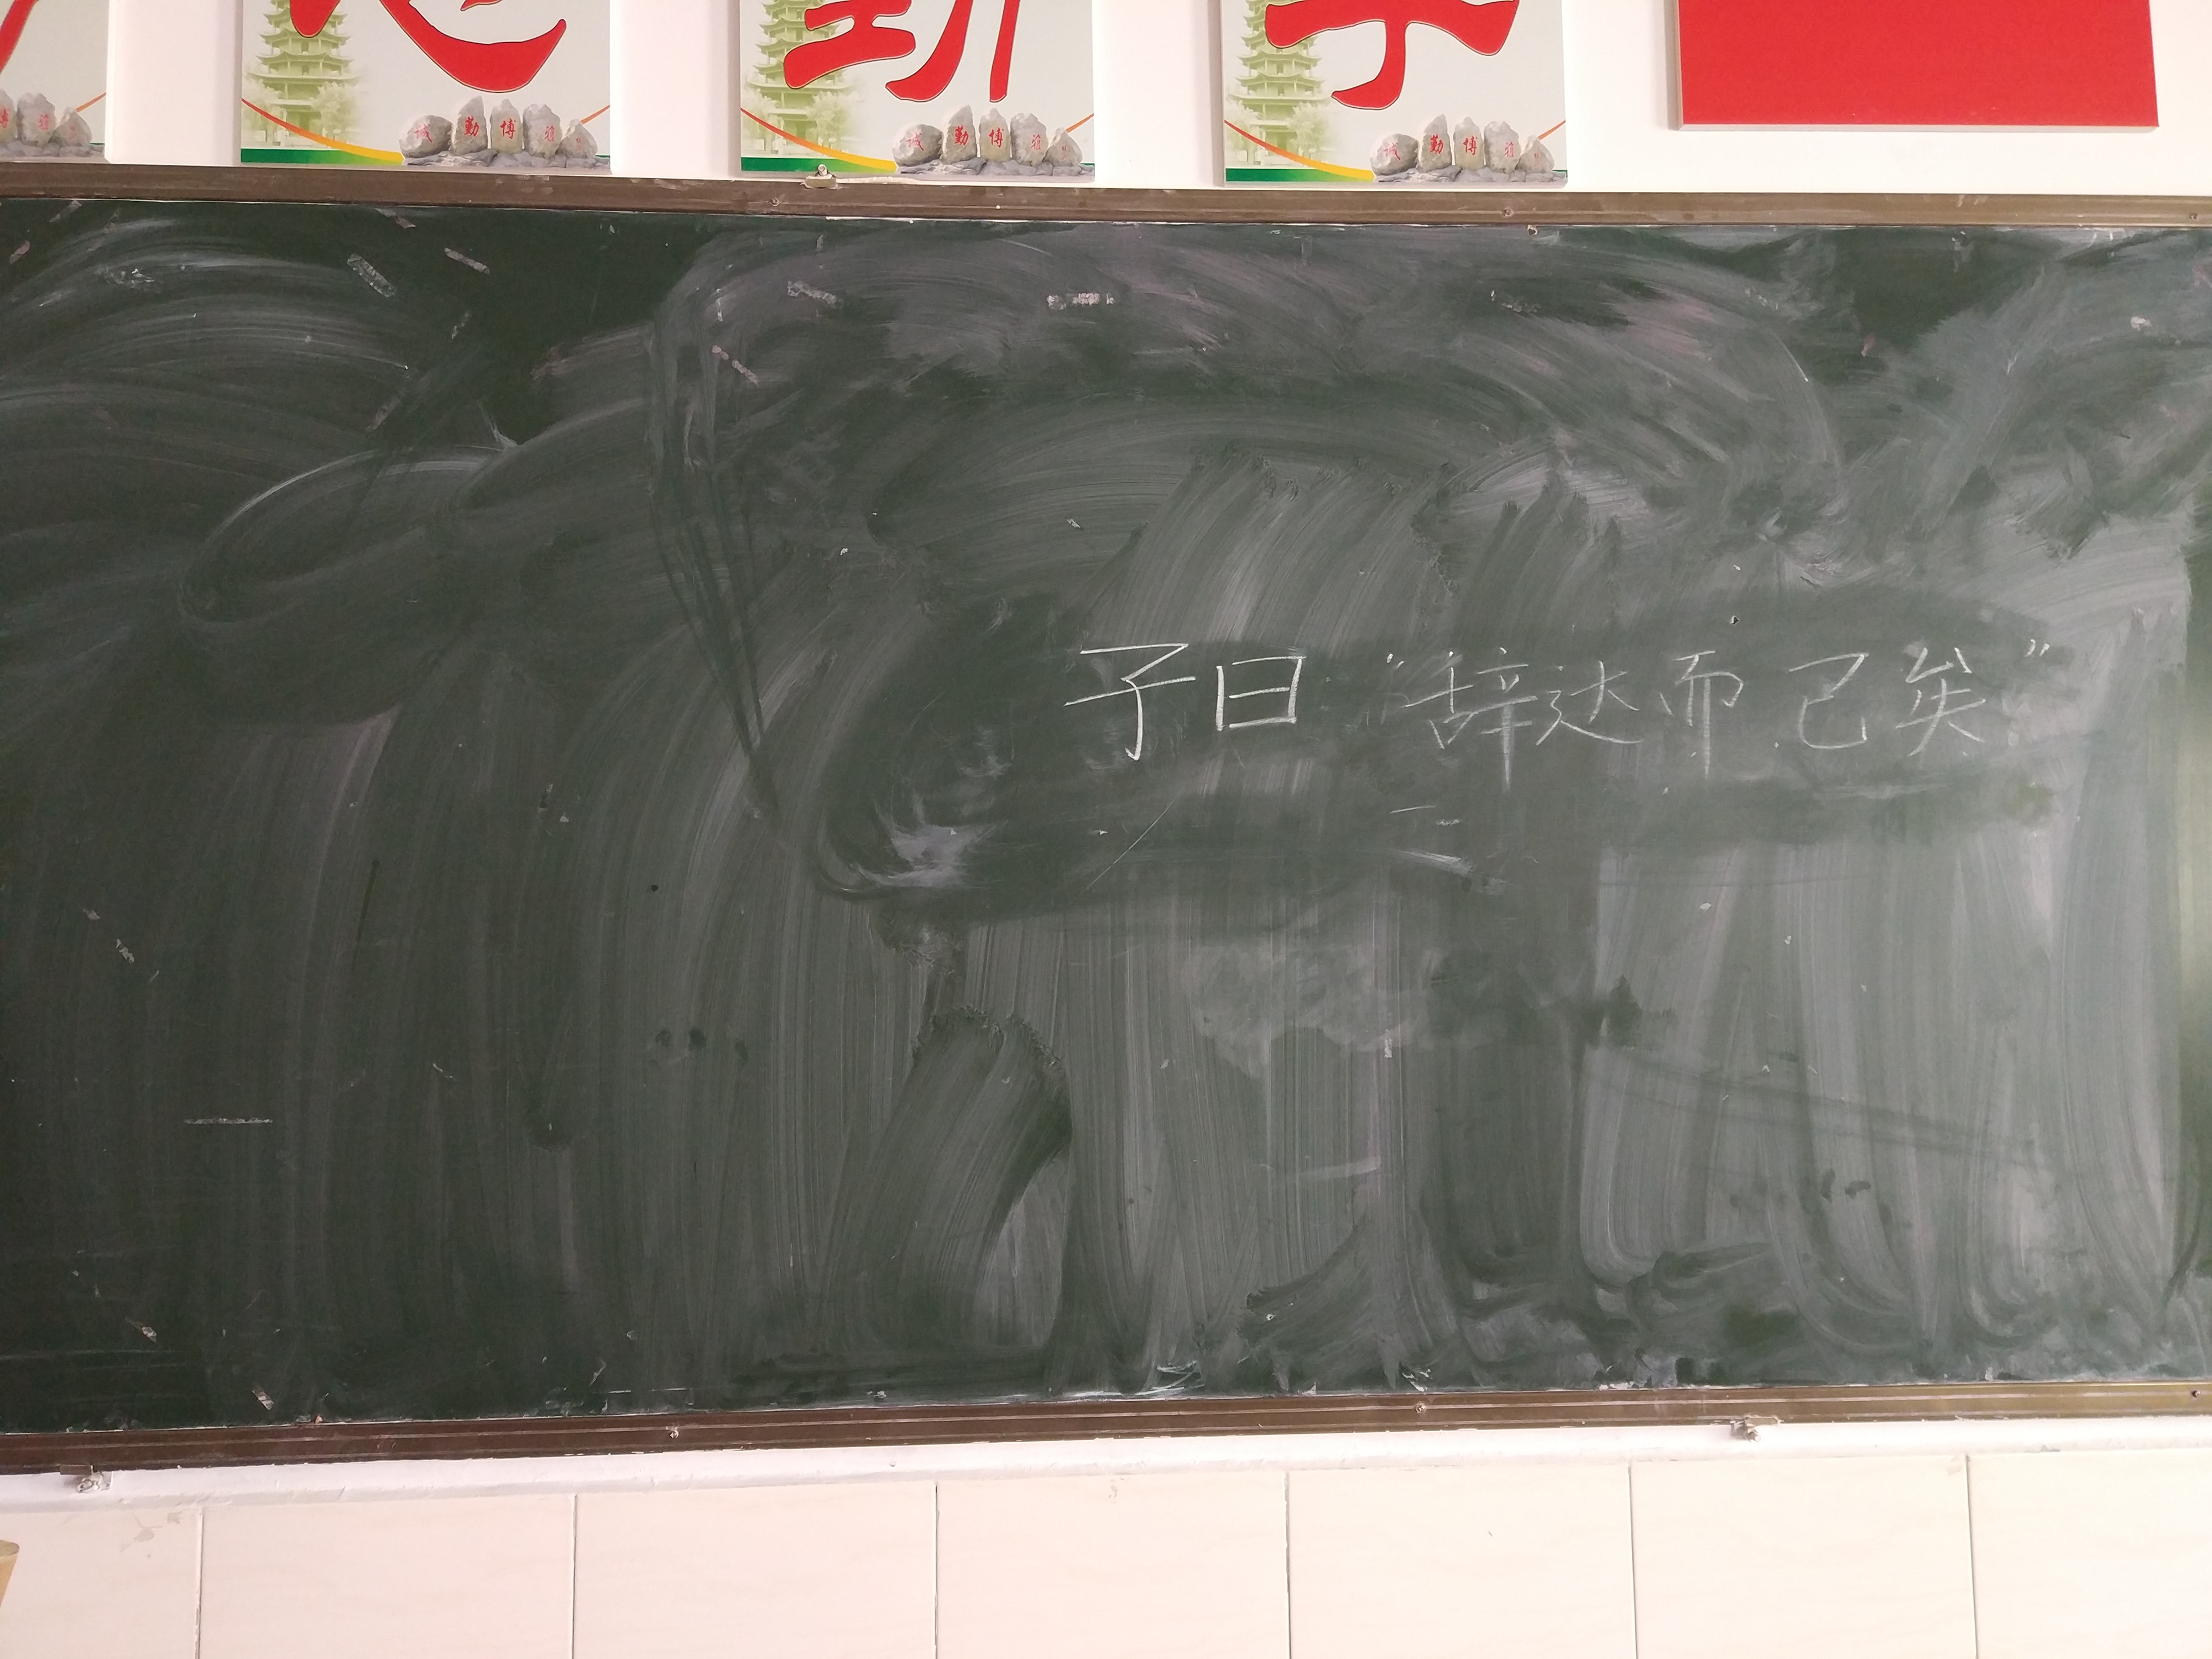 劲 学
诚 勤 博 雅
诚 勤 博 雅
诚 勤 博 雅
子曰“辞达而已矣”